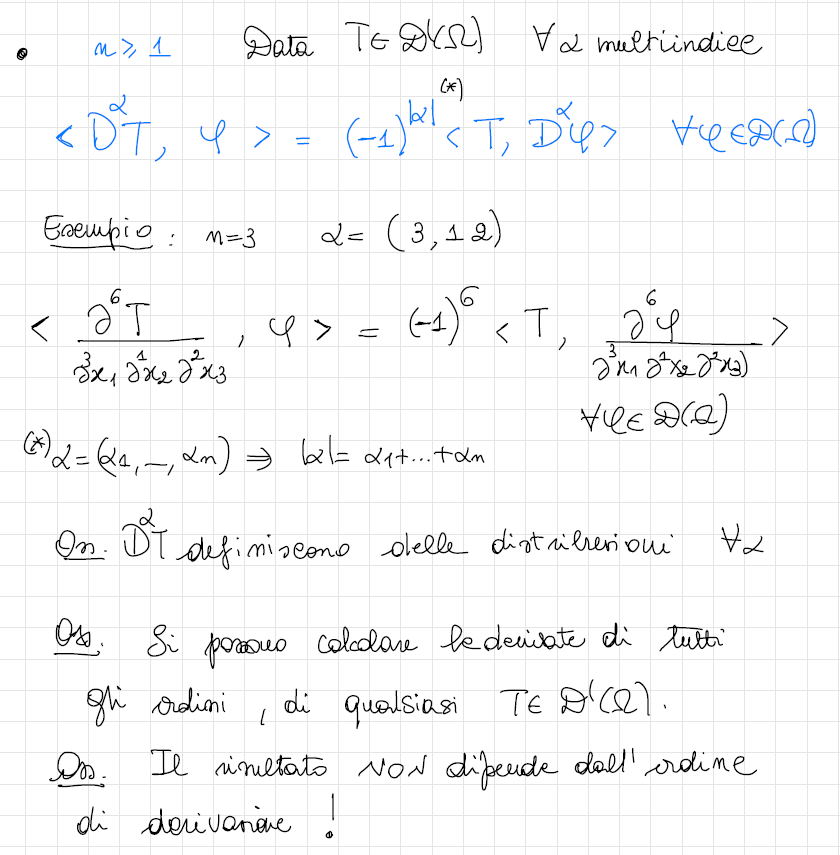 • n ≥ 1 Data T ∈ D'(Ω) ∀ α multiindice
< D^α T, φ > = (-1)^|α| (*) < T, D^α φ > ∀φ ∈ D(Ω)
Esempio : n=3 α = (3, 1 2)
< ∂^6 T / ∂^3x_1 ∂^1x_2 ∂^2x_3 , φ > = (-1)^6 < T, ∂^6 φ / ∂^3x_1 ∂^1x_2 ∂^2x_3) >
∀φ ∈ D(Ω)
(*) α = (α1, –, αn) ⇒ |α| = α1+...+αn
Oss. D^α T definiscono delle distribuzioni ∀α
Oss. Si possono calcolare le derivate di tutti
gli ordini , di qualsiasi T ∈ D'(Ω).
Oss. Il risultato NON dipende dall'ordine
di derivazione !